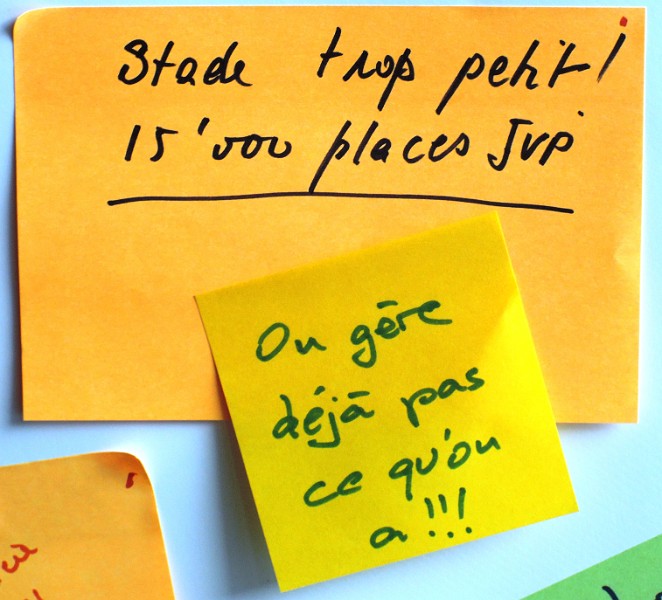 Stade trop petit!
15'000 places SVP
On gère
déjà pas
ce qu'on
a!!!